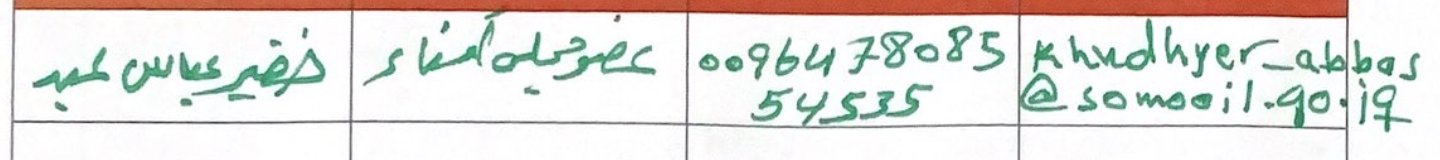 خضير عباس عبد
عضو أمناء
0096478085
54535
Khudhyer_abbas
@somooil.go.iq